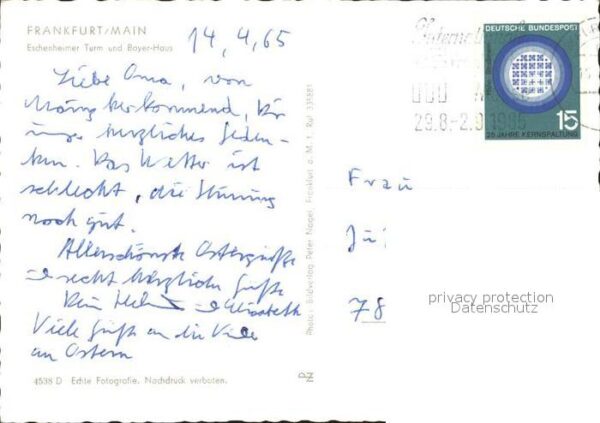 FRANKFURT/MAIN
Eschenheimer Turm und Bayer-Haus
14.4.65
Liebe Oma, von
kommend,
herzliches Geden-
ken. Das Wetter ist
schlecht, die Stimmung
noch gut.
Allerschönste Ostergrüße
recht herzliche Grüße
Dein Elisabeth
Viele Grüße an die
an Ostern
4538 D Echte Fotografie. Nachdruck verboten.
Photo: Bildverlag Peter Nagel, Frankfurt a. M. 1, Ruf
DEUTSCHE BUNDESPOST
15
25 JAHRE KERNSPALTUNG
29.8.-2.9.
Frau
78
privacy protection
Datenschutz